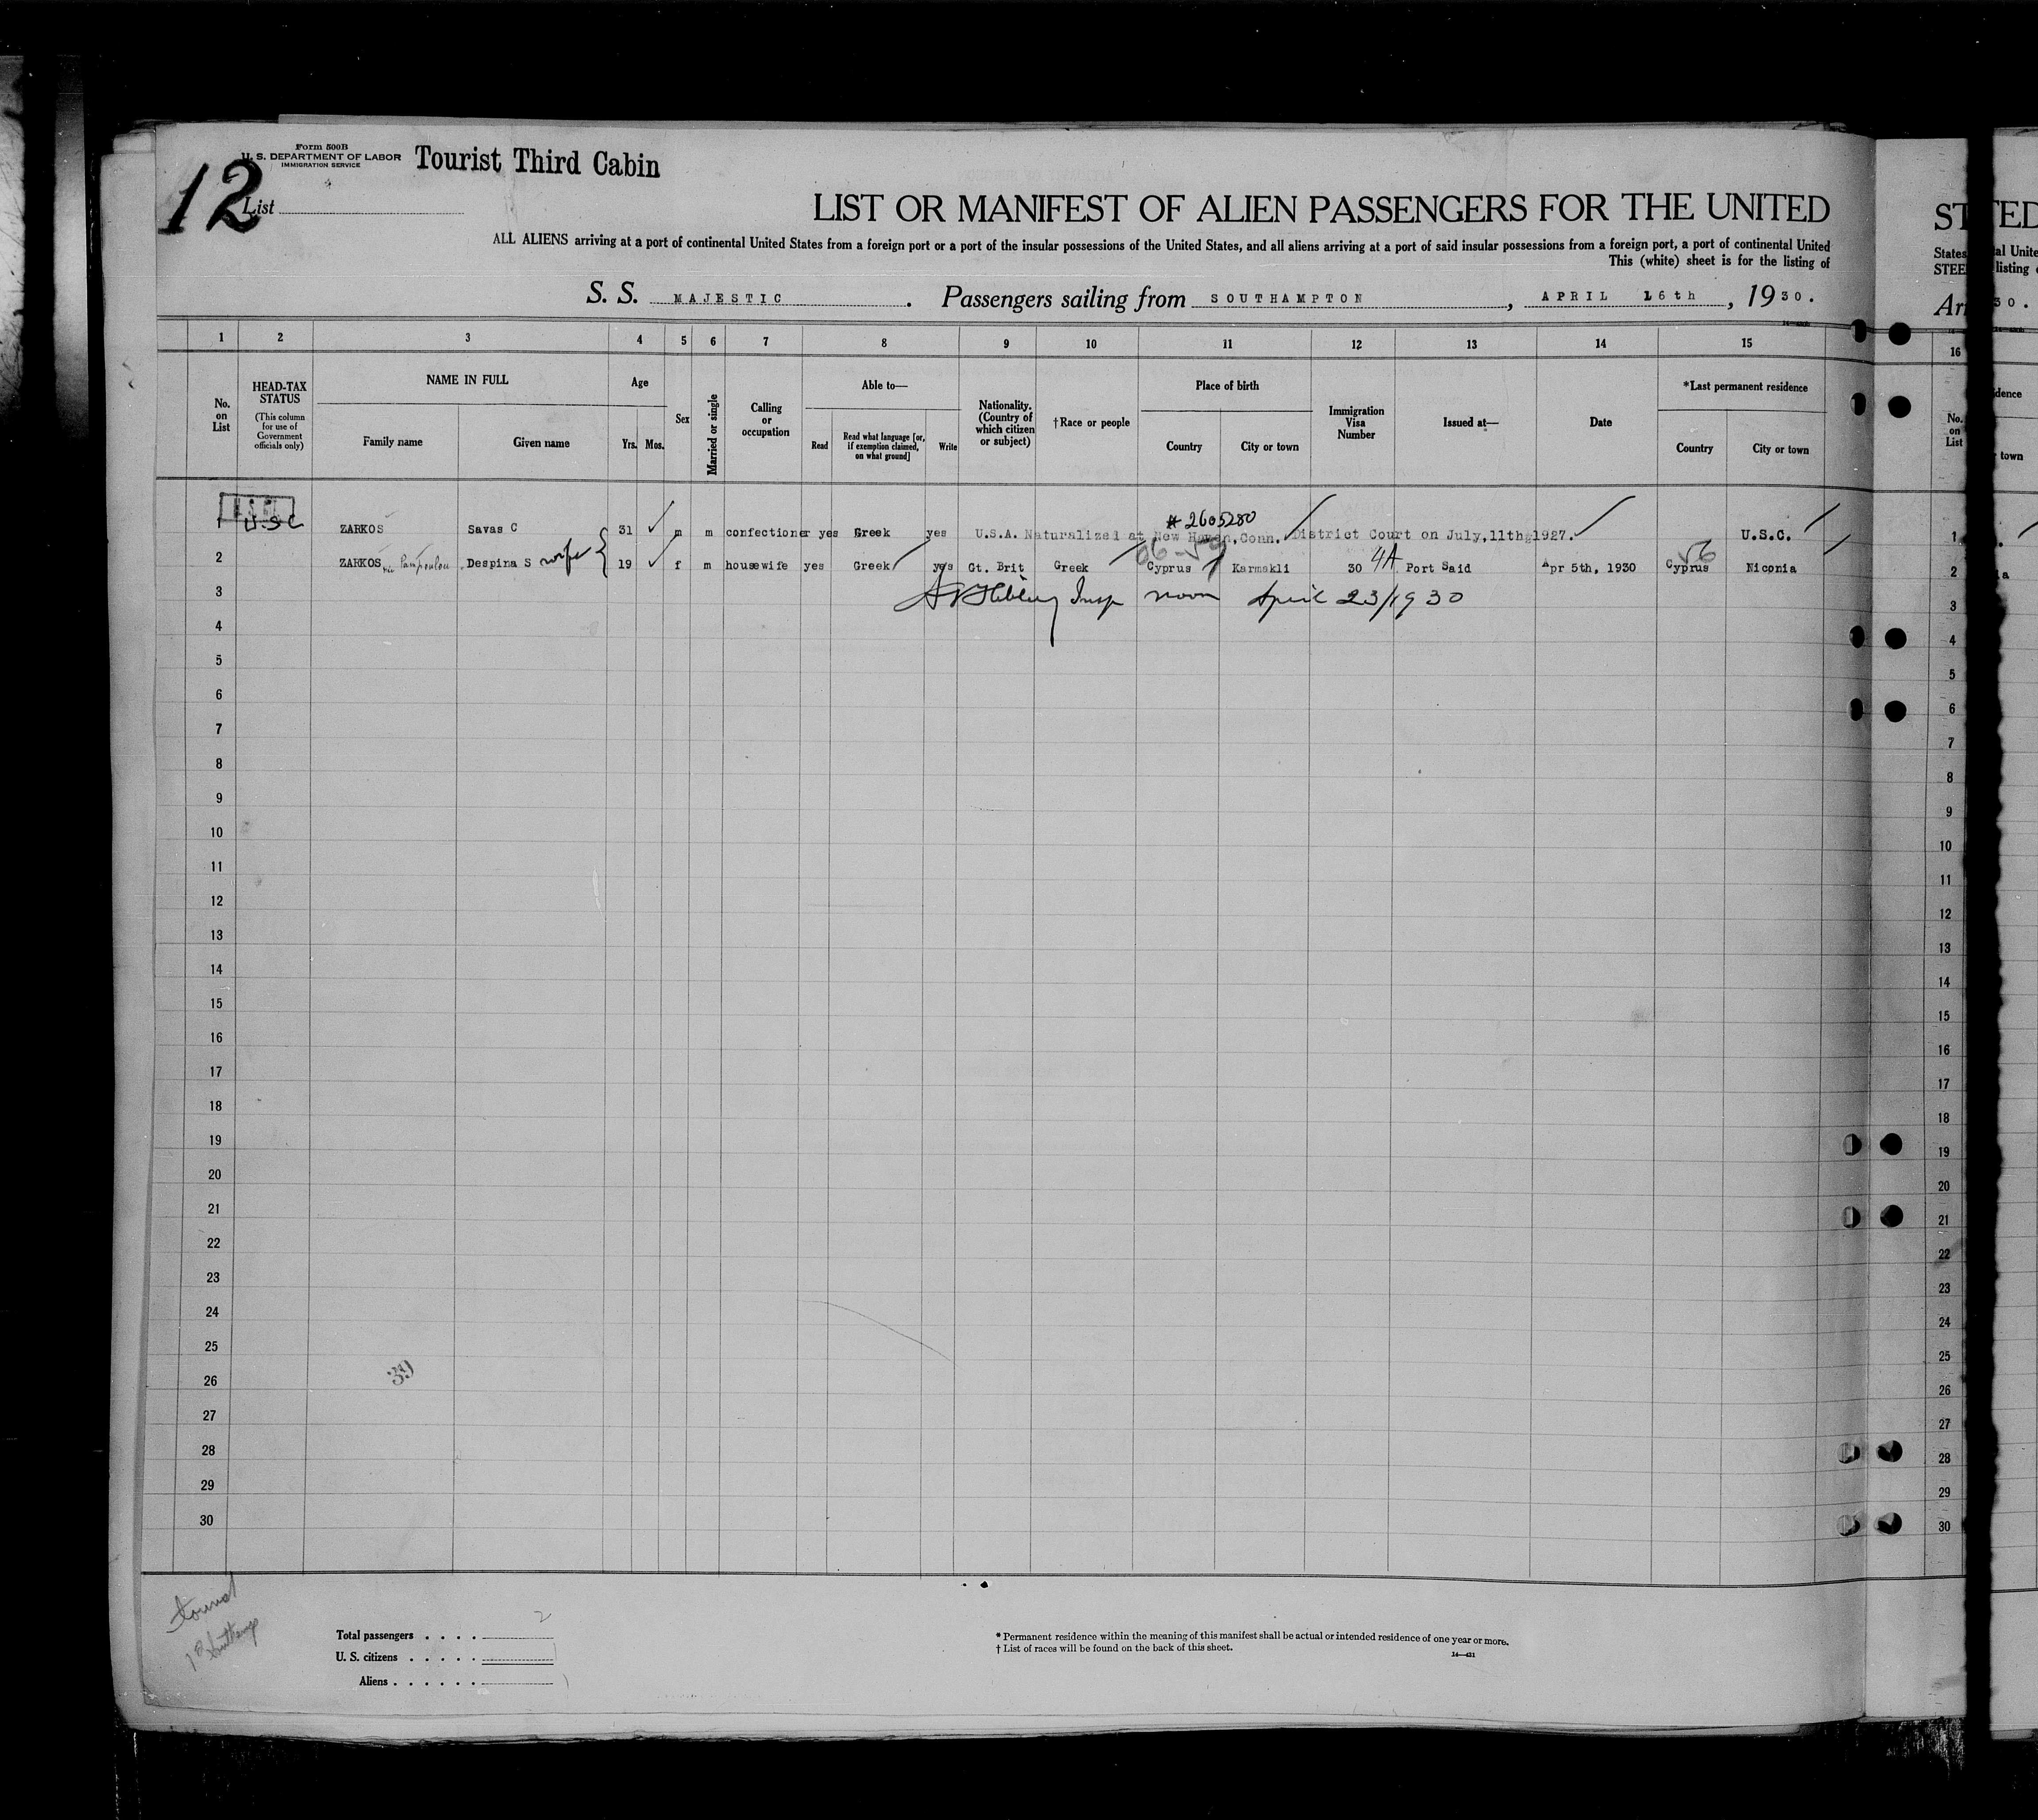 Form 500B
U. S. DEPARTMENT OF LABOR
IMMIGRATION SERVICE
Tourist Third Cabin
12
List
LIST OR MANIFEST OF ALIEN PASSENGERS FOR THE UNITED
ALL ALIENS arriving at a port of continental United States from a foreign port or a port of the insular possessions of the United States, and all aliens arriving at a port of said insular possessions from a foreign port, a port of continental United
This (white) sheet is for the listing of
S. S. MAJESTIC. Passengers sailing from SOUTHAMPTON, APRIL 16th, 1930.
1 2 3 4 5 6 7 8 9 10 11 12 13 14 15
No. on List
HEAD-TAX STATUS
(This column for use of Government officials only)
NAME IN FULL
Family name Given name
Age
Yrs. Mos.
Sex
Married or single
Calling or occupation
Able to—
Read
Read what language [or, if exemption claimed, on what ground]
Write
Nationality. (Country of which citizen or subject)
†Race or people
Place of birth
Country City or town
Immigration Visa Number
Issued at—
Date
*Last permanent residence
Country City or town
# 2605280
1 U.S.C ZARKOS Savas C 31 m m confectioner yes Greek yes U.S.A. Naturalized at New Haven,Conn. District Court on July,11th,1927. U.S.C.
2 ZARKOS Despina S wife 19 f m housewife yes Greek yes Gt. Brit Greek Cyprus Karmakli 30 4A Port Said Apr 5th, 1930 Cyprus Niconia
56
3 Insp noon April 23/1930
4
5
6
7
8
9
10
11
12
13
14
15
16
17
18
19
20
21
22
23
24
25
26
27
28
29
30
39
Total passengers . . . . 2
U. S. citizens . . . . .
Aliens . . . . . .
* Permanent residence within the meaning of this manifest shall be actual or intended residence of one year or more.
† List of races will be found on the back of this sheet.
14—421
ST
States
STEE
Ar
16
No. on List
1
2
3
4
5
6
7
8
9
10
11
12
13
14
15
16
17
18
19
20
21
22
23
24
25
26
27
28
29
30
TED
al Unite
listing
30.
dence
town